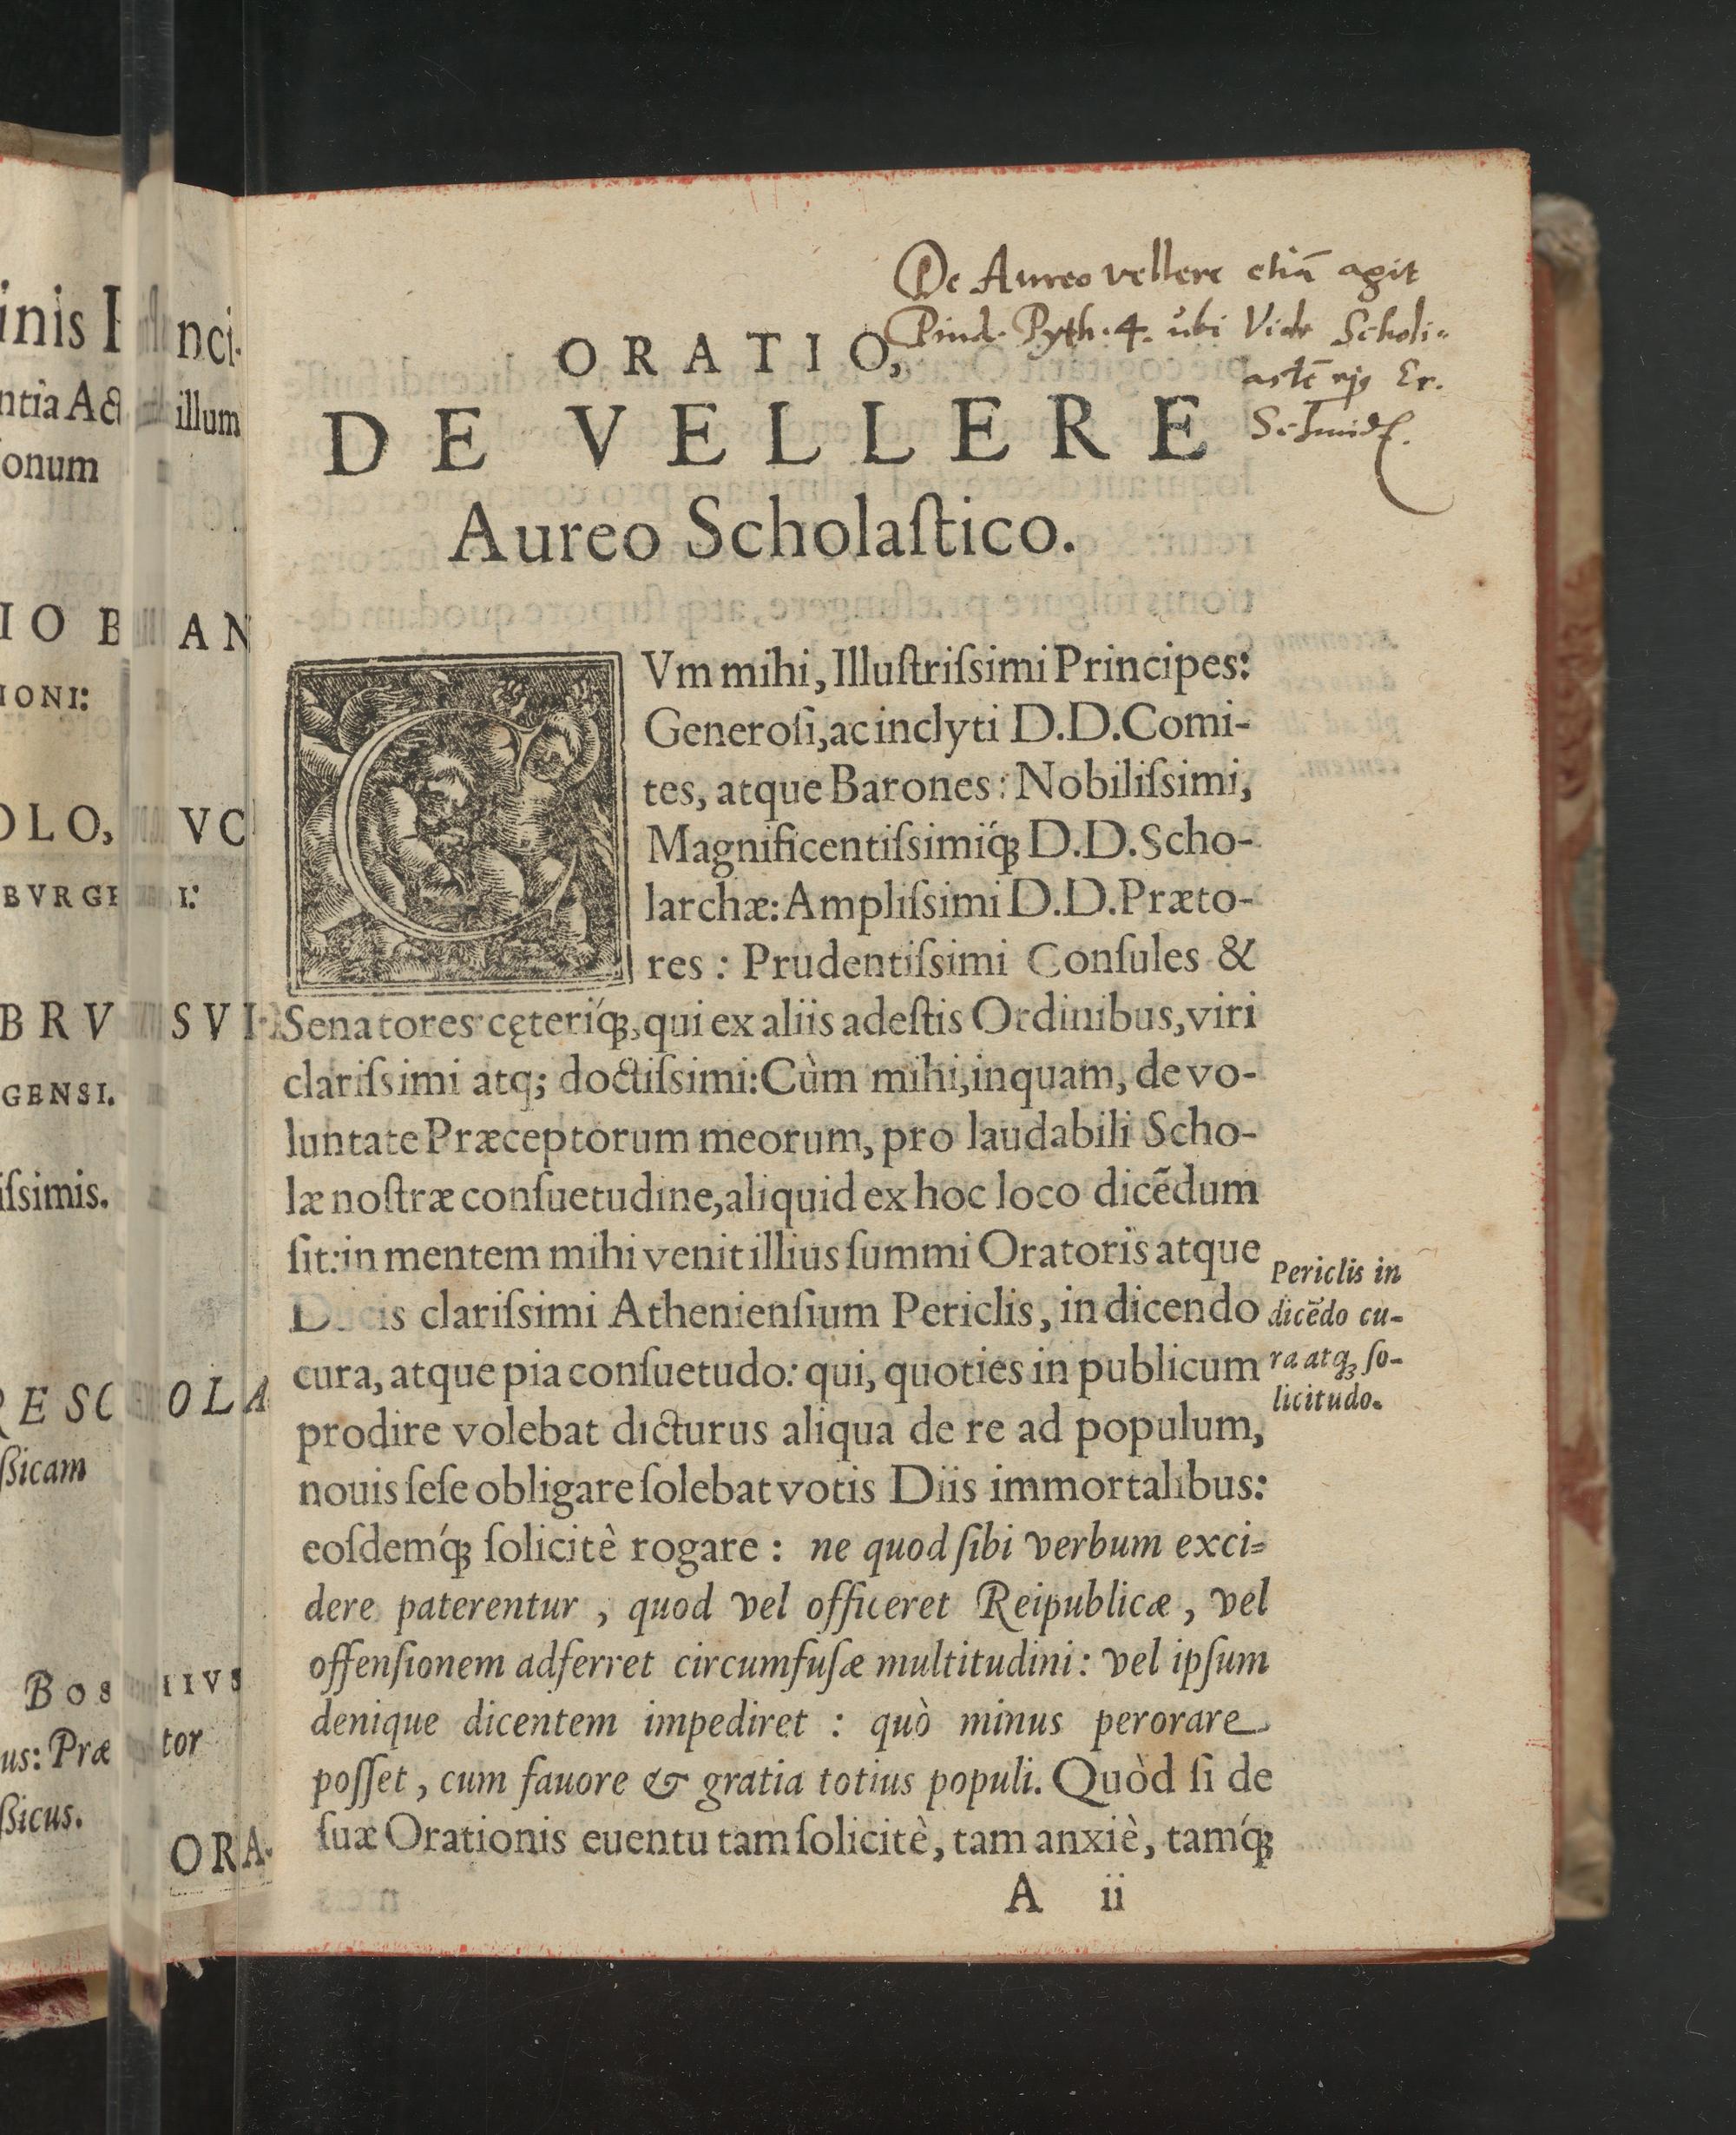 De Aureo vellere etiã agit
Pind. Pyth. 4. ubi Vide Scholi-
astē ejq Er.
Schmid.
ORATIO,
DE VELLERE
Aureo Scholaſtico.
CVm mihi, Illuſtriſsimi Principes:
Generoſi, ac inclyti D.D. Comi-
tes, atque Barones: Nobiliſsimi,
Magnificentiſsimiq́; D.D. Scho-
larchæ: Ampliſsimi D.D. Præto-
res: Prudentiſsimi Conſules &
Senatores cęteriq́;, qui ex aliis adeſtis Ordinibus, viri
clariſsimi atq; doctiſsimi: Cùm mihi, inquam, de vo-
luntate Præceptorum meorum, pro laudabili Scho-
læ noſtræ conſuetudine, aliquid ex hoc loco dicẽdum
ſit: in mentem mihi venit illius ſummi Oratoris atque
Ducis clariſsimi Athenienſium Periclis, in dicendo
cura, atque pia conſuetudo: qui, quoties in publicum
prodire volebat dicturus aliqua de re ad populum,
nouis ſeſe obligare ſolebat votis Diis immortalibus:
eoſdemq́; ſolicitè rogare: ne quod ſibi verbum exci-
dere paterentur, quod vel officeret Reipublicæ, vel
offenſionem adferret circumfuſæ multitudini: vel ipſum
denique dicentem impediret: quò minus perorare
poſſet, cum fauore & gratia totius populi. Quòd ſi de
ſuæ Orationis euentu tam ſolicitè, tam anxiè, tamq́;
A ii
Periclis in
dicẽdo cu-
ra atq; ſo-
licitudo.
inis nci-
illum
onum
IO B AN
IONI:
OLO, VC
BVRGI I:
BRV SVI
GENSI.
iſsimis.
RESC OLA
ßicam
Bos IIVS
us: Præ tor
ßicus.
ORA-